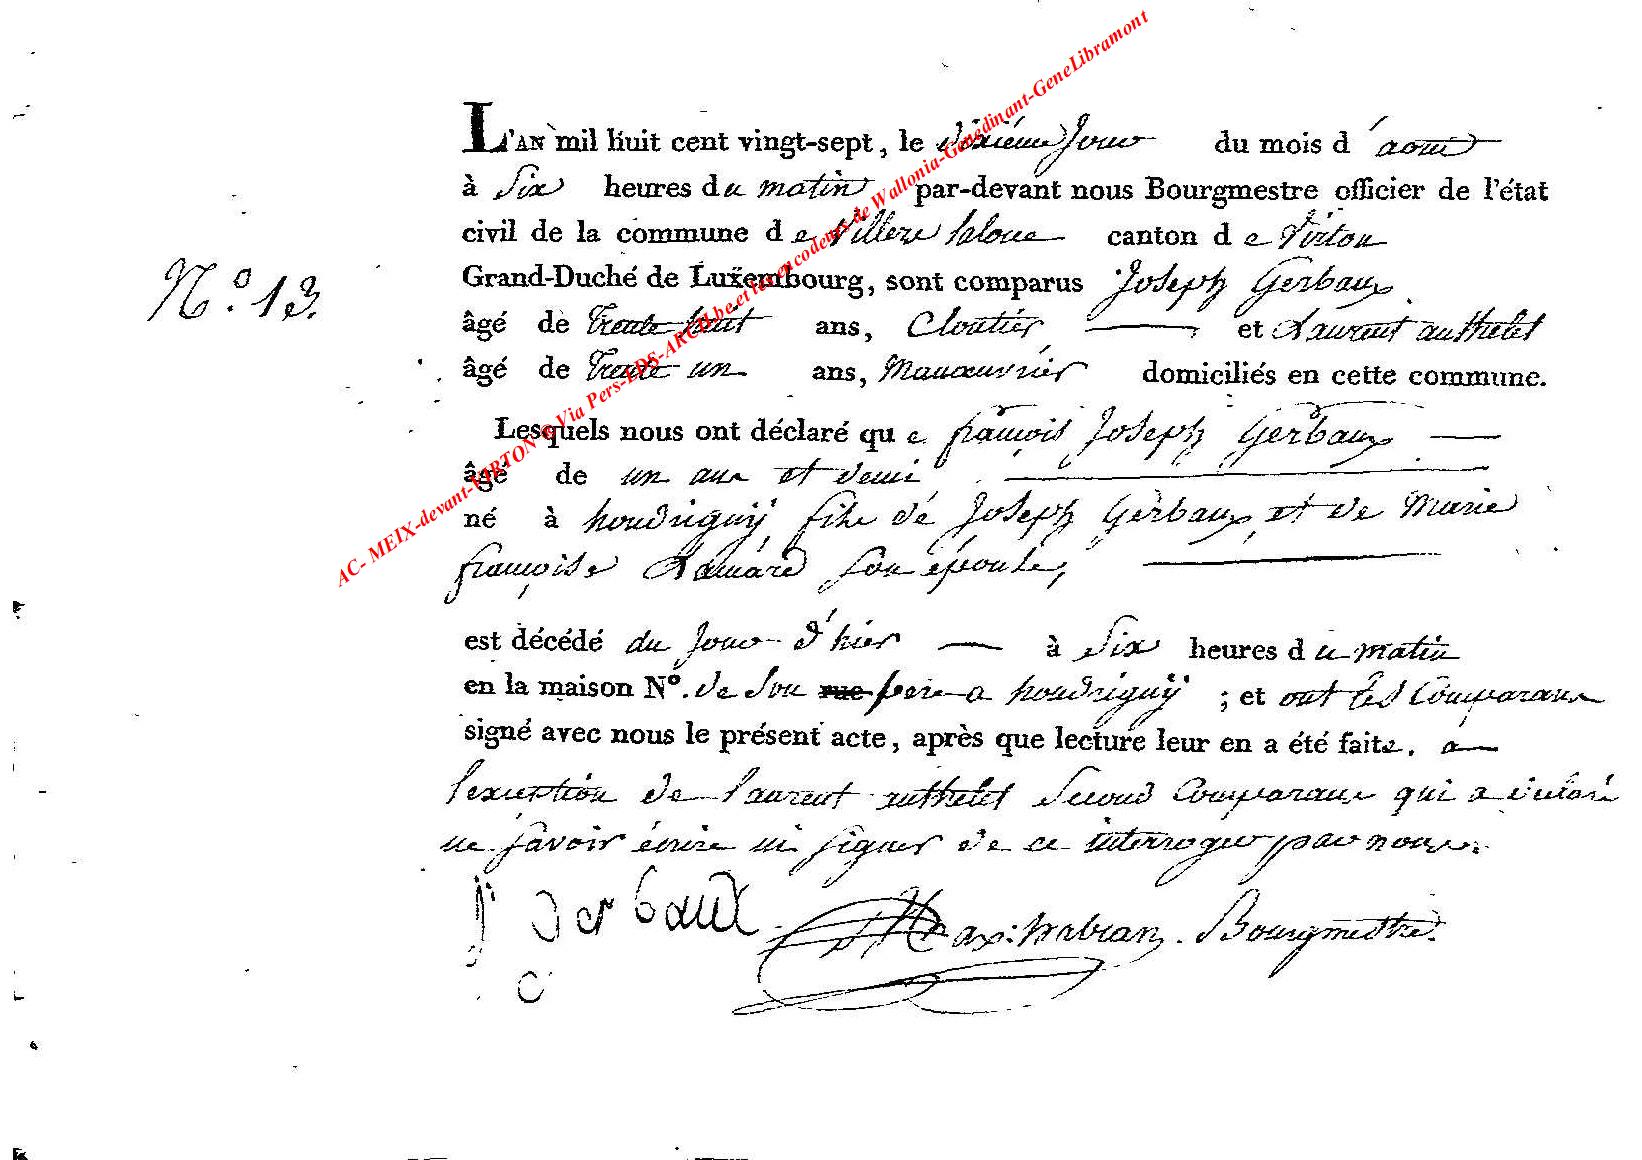 L'AN mil huit cent vingt-sept, le dixiéme Jour du mois d'aout
à Six heures du matin par-devant nous Bourgmestre officier de l'état
civil de la commune de Villere laloue canton de Virton
Grand-Duché de Luxembourg, sont comparus Joseph Gerbaux
N.º 13.
âgé de Trente huit ans, Cloutier et Laurent authelet
âgé de Trente un ans, Manœuvrier domiciliés en cette commune.
Lesquels nous ont déclaré que françois Joseph Gerbaux
âgé de un an et demi
né à houdriguÿ fils de Joseph Gerbaux et de Marie
françoise son épouse,
est décédé du Jour d'hier à Six heures du matin
en la maison Nº. de son rue pere a houdriguÿ ; et ont les Comparans
signé avec nous le présent acte, après que lecture leur en a été faite. a
l'exception de laurent authelet second Comparant qui a déclaré
ne savoir écrire ni signer de ce interroger par nous.
J Gerbaux Bourgmestre.
AC- MEIX-devant-VIRTON © Via Pers-EDS-ARCH.be et les encodeurs de Wallonia-Genedinant-GeneLibramont